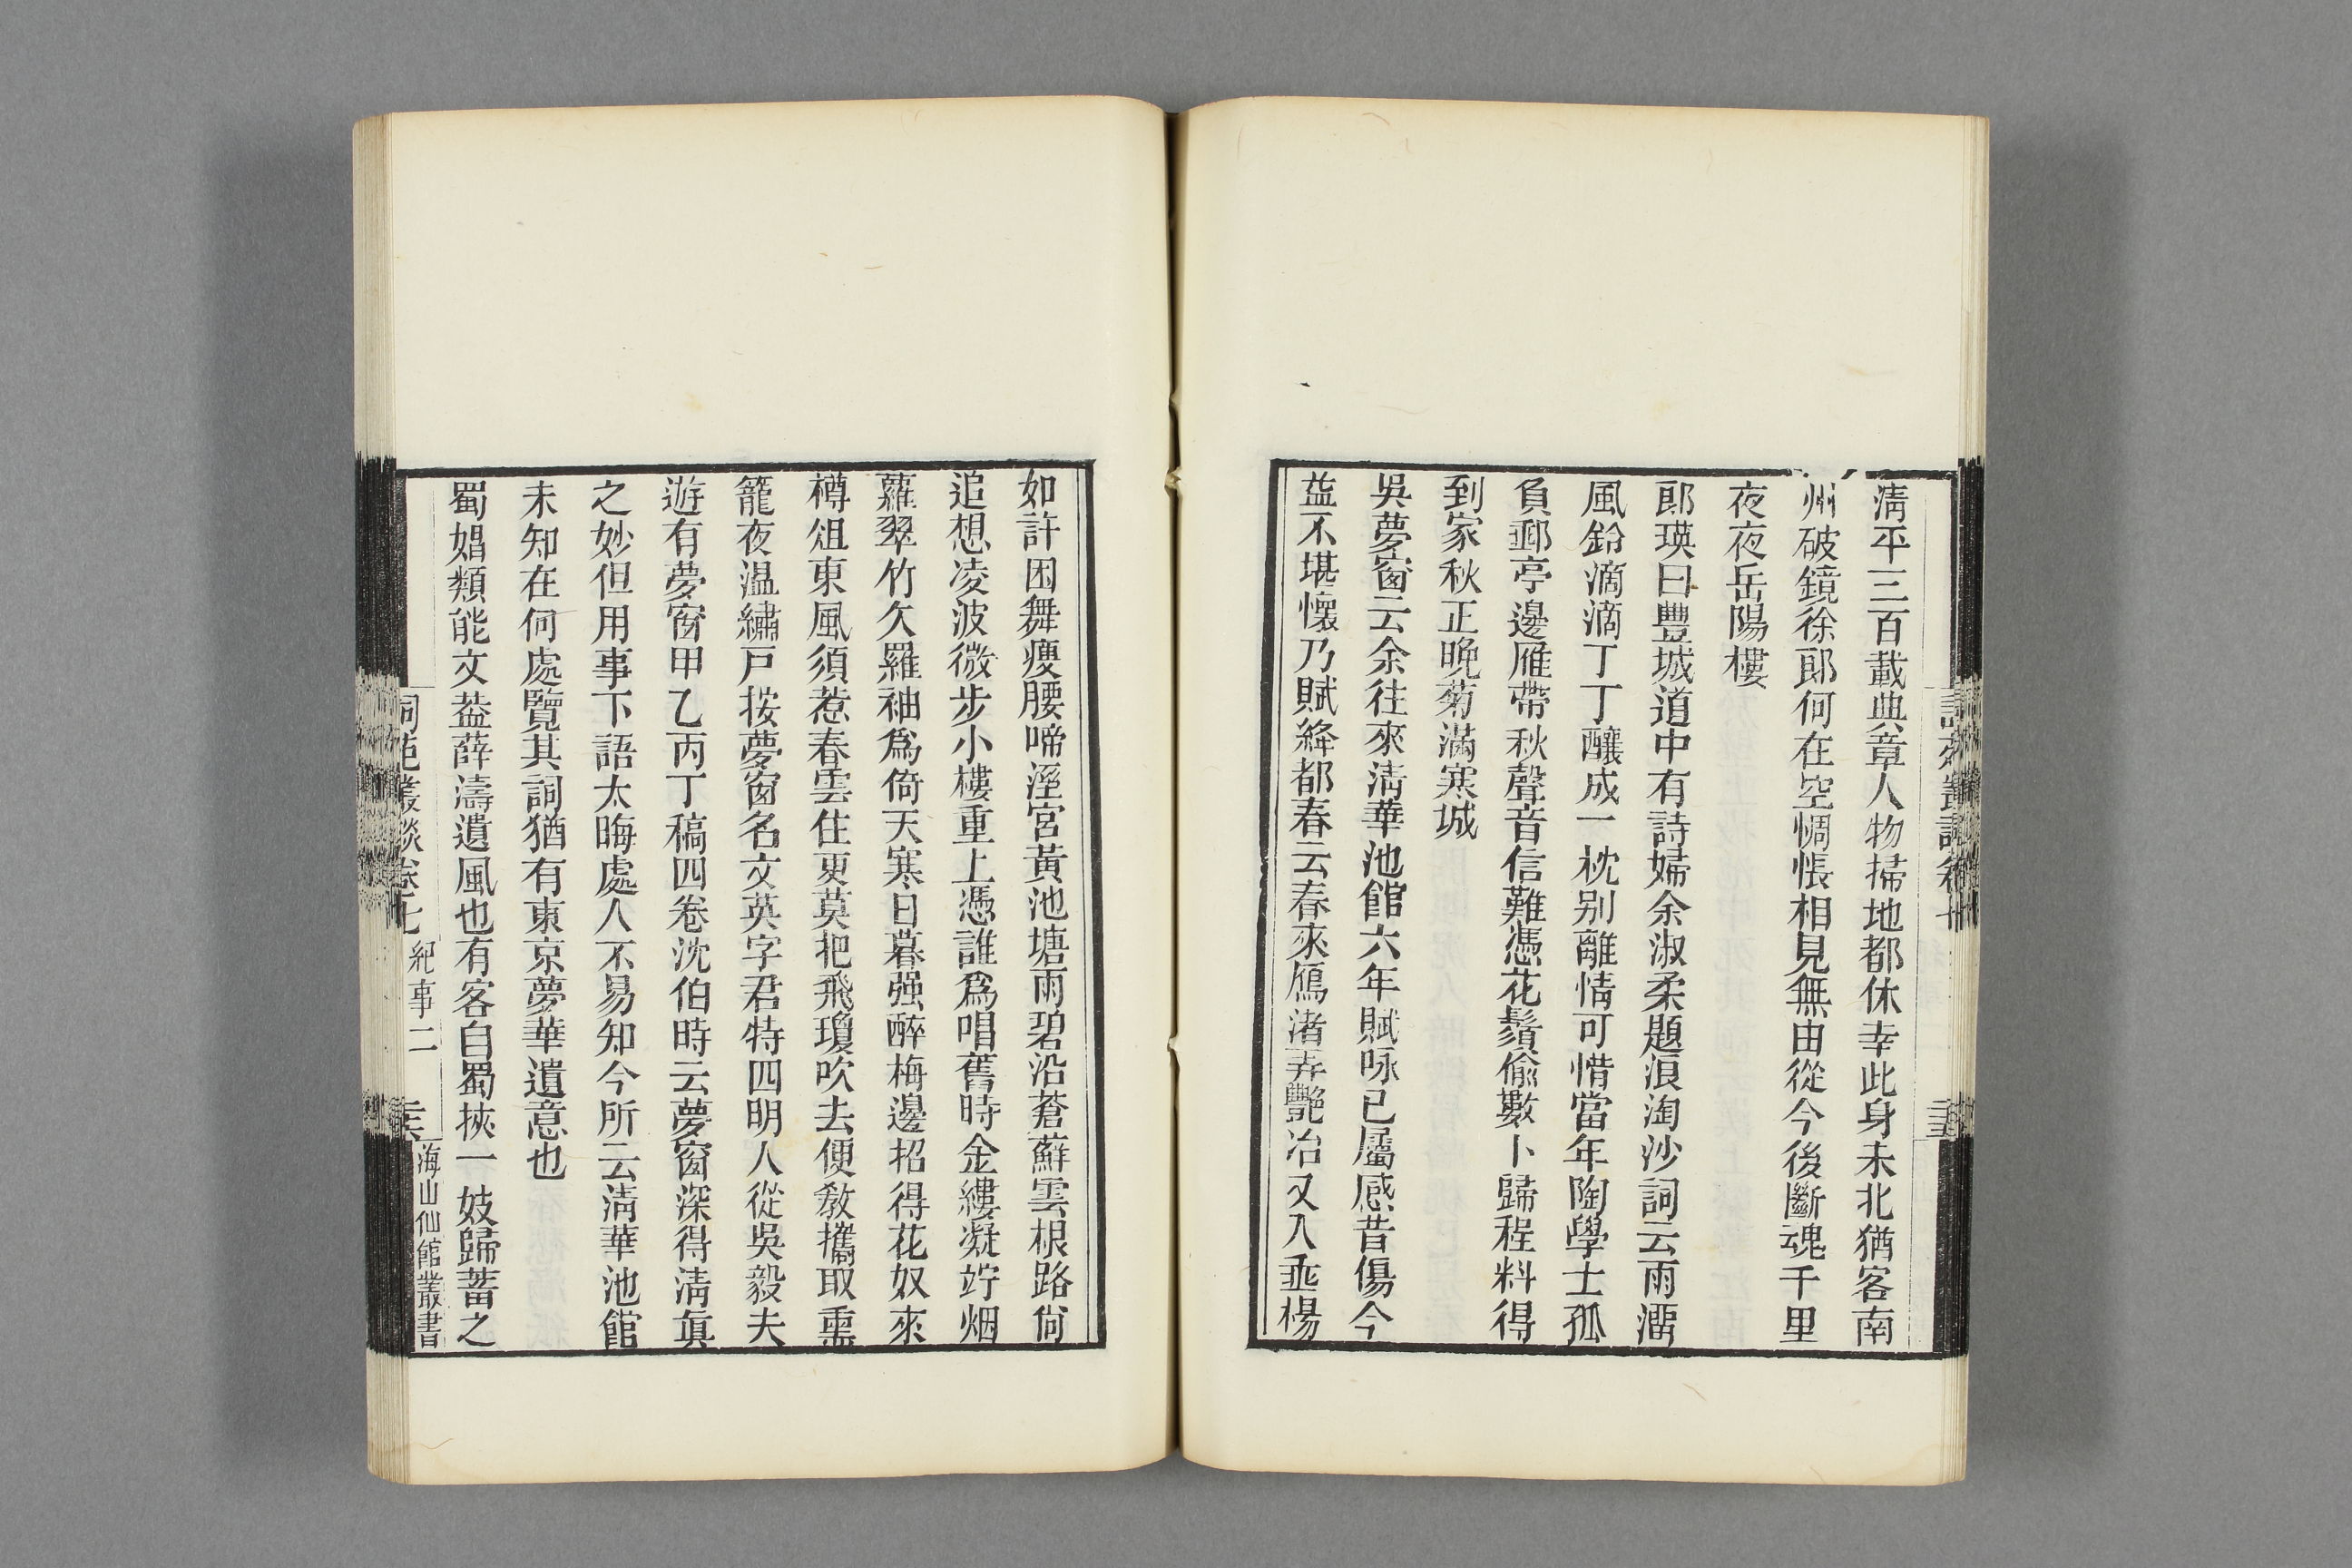 清平三百載典章人物掃地都休幸此身未北猶客南
州破鏡徐郎何在空惆悵相見無由從今後斷魂千里
夜夜岳陽樓
郎瑛曰豐城道中有詩婦余淑柔題浪淘沙詞云雨溜
風鈴滴滴丁丁釀成一枕别離情可惜當年陶學士孤
負郵亭邊雁帶秋聲音信難憑花鬚偷數卜歸程料得
到家秋正晚菊滿寒城
吳夢窗云余往來淸華池館六年賦咏已屬感昔傷今
益不堪懷乃賦絳都春云春來鴈渚弄艷冶又入垂楊
如許困舞瘦腰啼溼宮黃池塘雨碧沿蒼蘚雲根路尙
追想凌波微步小樓重上憑誰爲唱舊時金縷凝竚烟
蘿翠竹欠羅袖爲倚天寒日暮强醉梅邊招得花奴來
樽俎東風須惹春雲住更莫把飛瓊吹去便敎攜取熏
籠夜溫繡戸按夢窗名文英字君特四明人從吳毅夫
遊有夢窗甲乙丙丁稿四卷沈伯時云夢窗深得淸眞
之妙但用事下語太晦處人不易知今所云淸華池館
未知在何處覽其詞猶有東京夢華遺意也
蜀娼類能文葢薛濤遺風也有客自蜀挾一妓歸蓄之
詞苑叢談卷七 紀事二 海山仙館叢書